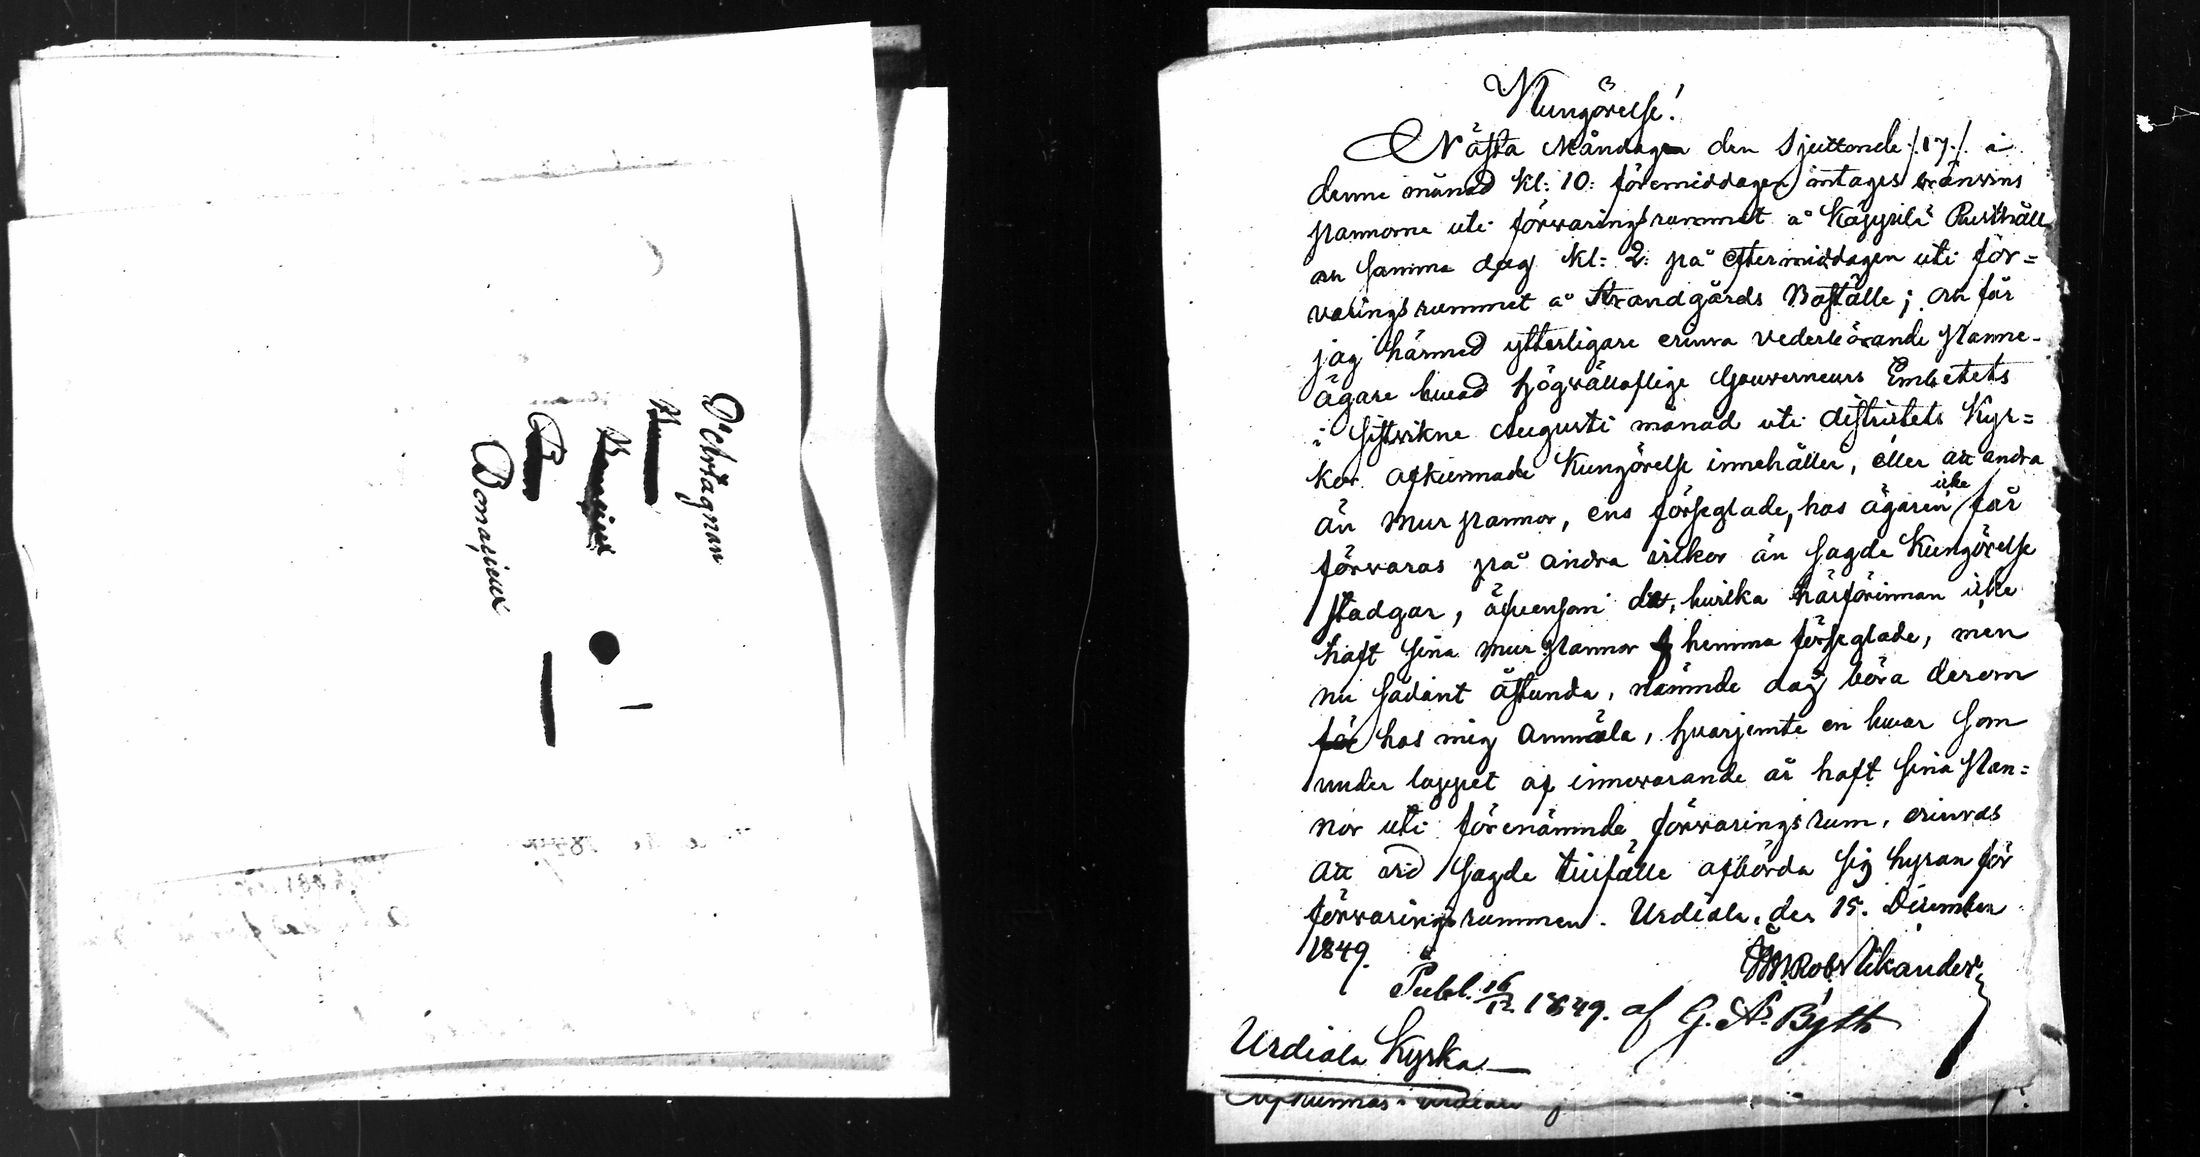 D'Artagnan
Bonasieux
Kungörelse!
Nästa Måndag den Sjuttonde /:17:/ i
denne månad kl: 10: föremiddagen intages bränvins
pannorne uti förvaringsrummet å Käppilä Rusthåll
an samma dag kl: 2: på eftermiddagen uti för=
varingsrummet å Strandgårds Boställe; och får
jag härmed ytterligare erinra vederbörande Panne-
ägare hvad Högvällofliga Gouverneurs Embetets
i sistvikne Augusti månad uti districtets Kyr=
kor afkunnade Kungörelse innehåller, eller att andra
än Mur pannor, ens förseglade, hos ägaren icke får
förvaras på andra vilkor än sagde Kungörelse
stadgar, äfvensom de, hvilka härförinnan icke
haft sina Mur Pannor hemma förseglade, men
nu sådant åstunda, nämnde dag böra derom
hos mig anmäla, hvarjemte en hvar som
under loppet af innevarande år haft sina Pan=
nor uti förenämnde förvaringsrum, erinras
att vid sagde tillfälle afbörda sig hyran för
förvaringsrummen. Urdiala, den 15. December
1849.
Rob. Vikander
Publ. 16/12 1849. af G. A. Byth
Urdiala Kyrka
Afkunnas i Urdiala